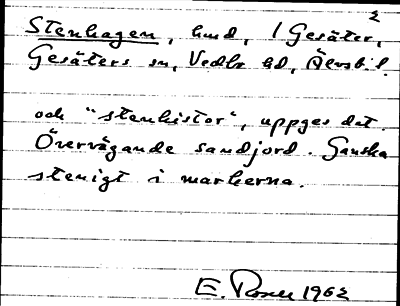 2
Stenhagen, hmd, 1 Gesäter,
Gesäters sn, Vedbo hd, Älvsb. l.
och "stenhistor", uppges det.
Övervägande sandjord. Ganska
stenigt i markerna.
E. Rosell 1962